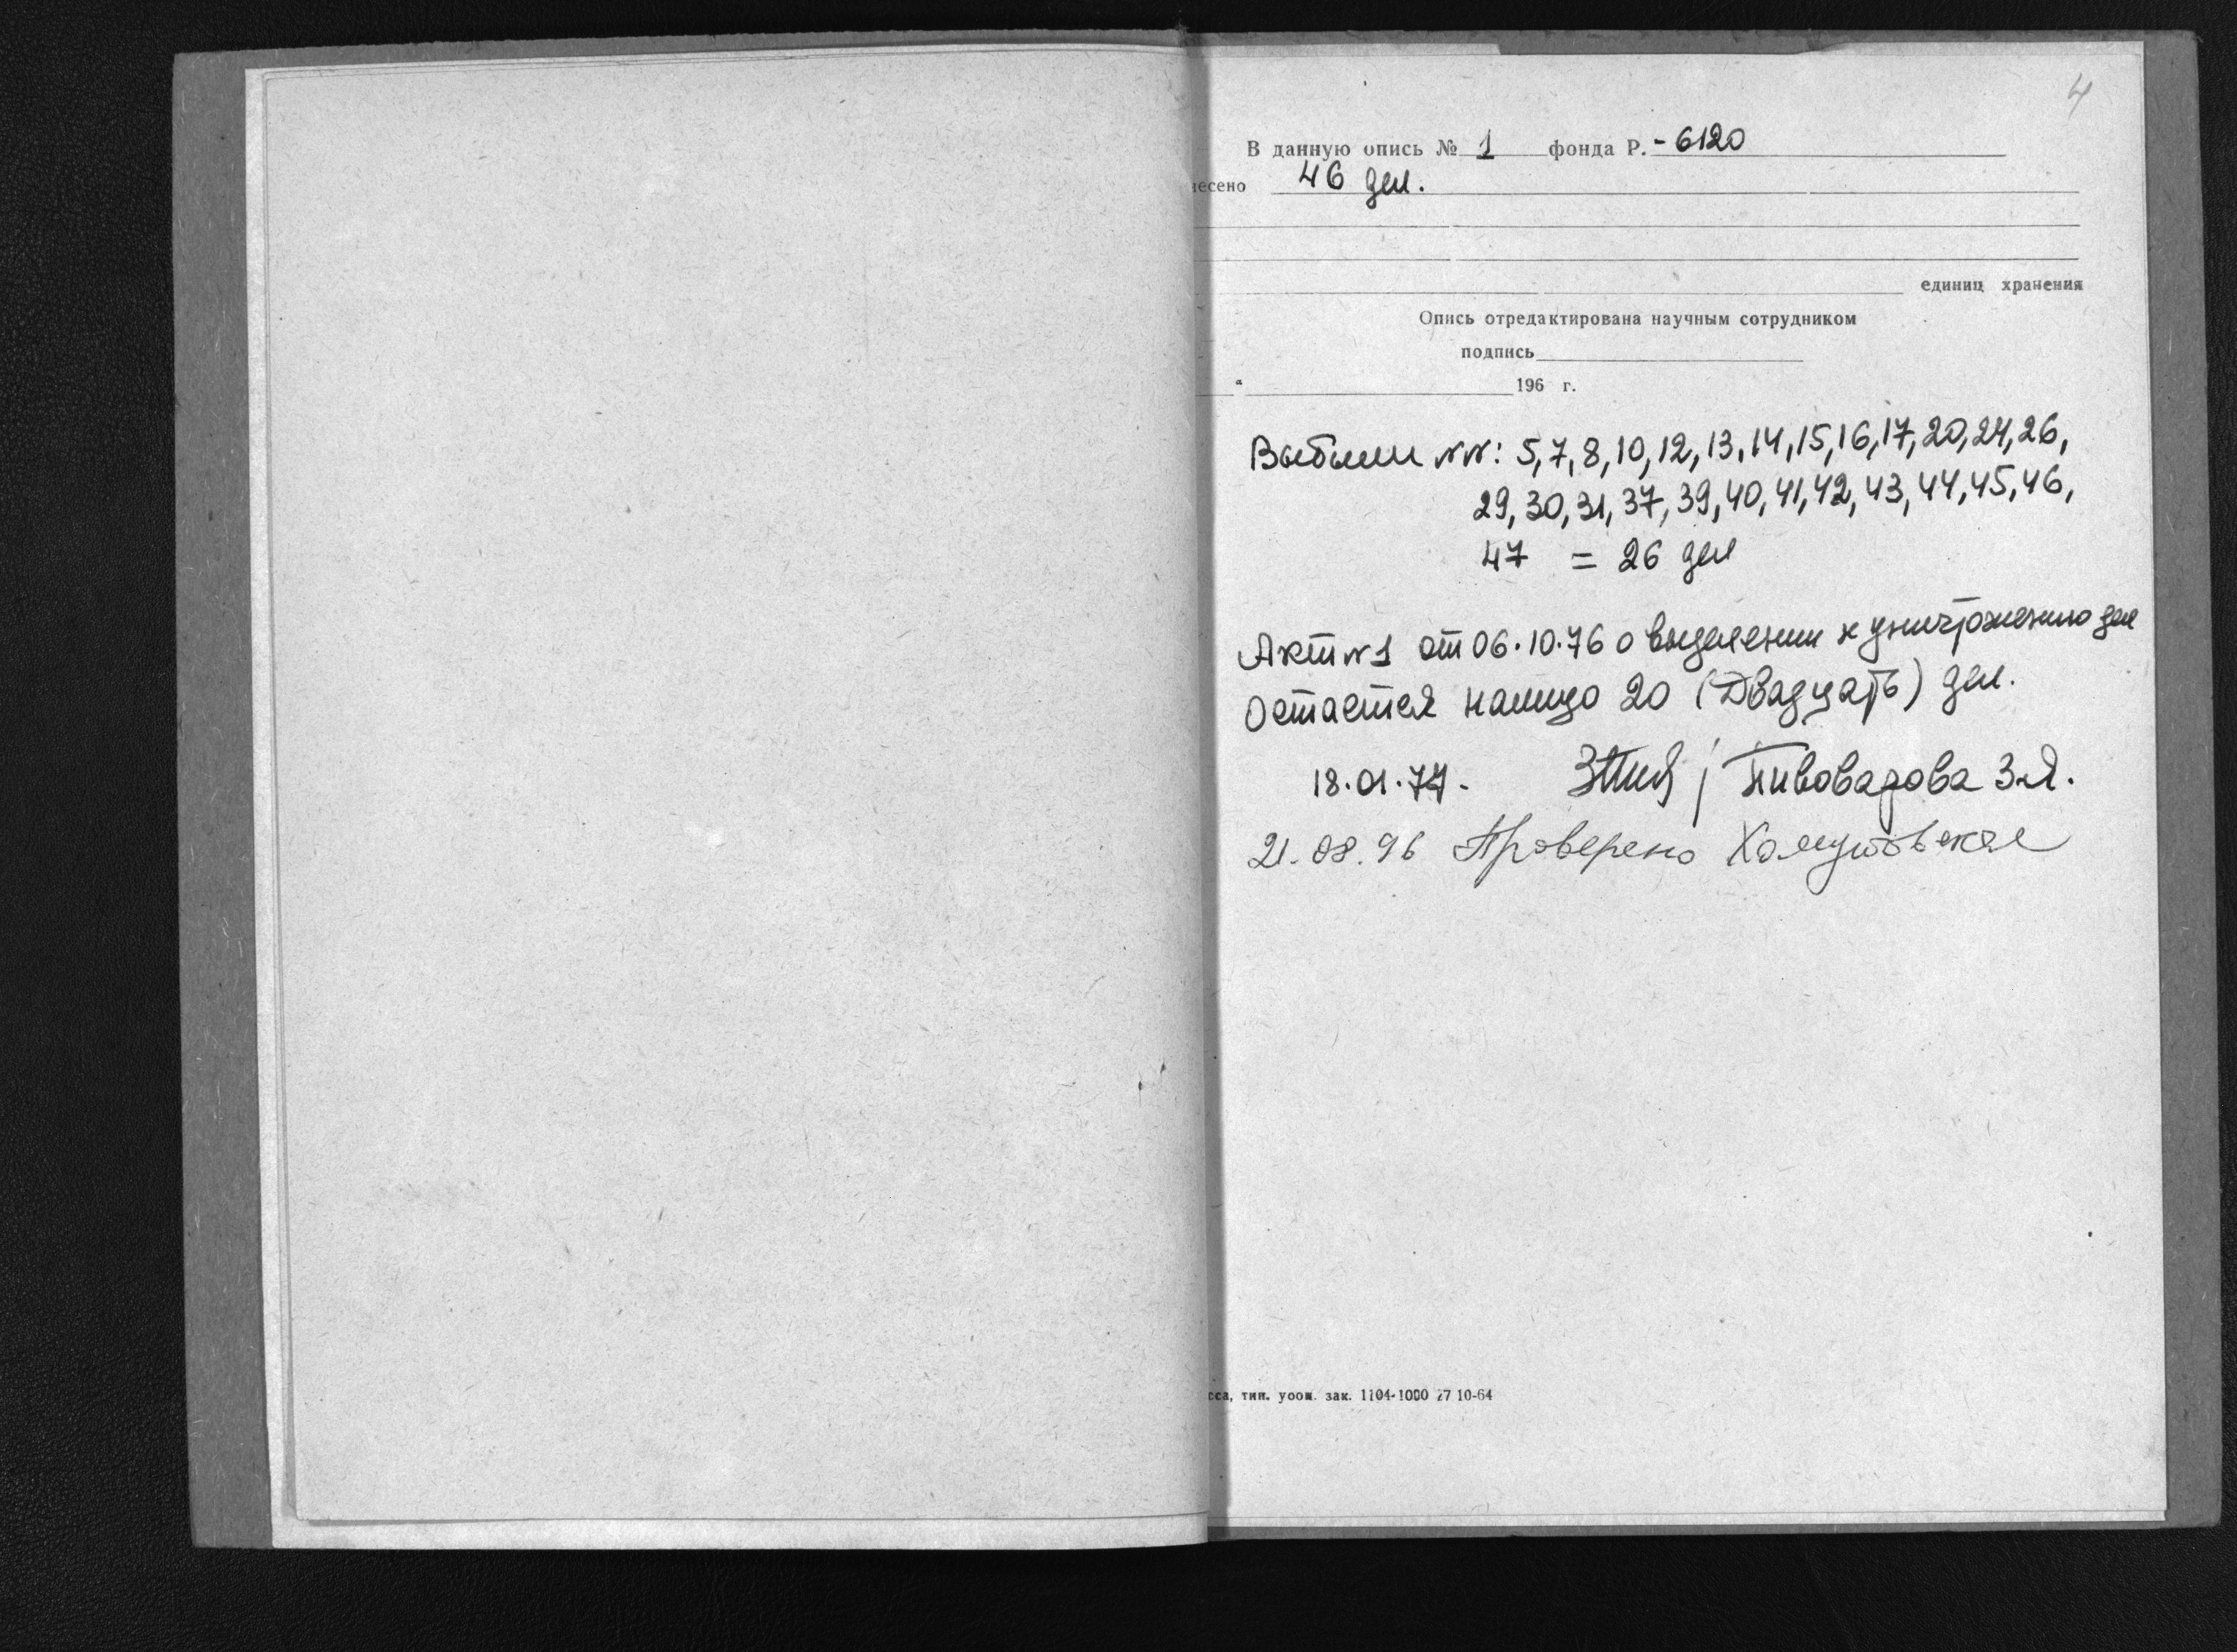 4
В данную опись № 1 фонда Р. - 6120
несено 46 дел.
единиц хранения
Опись отредактирована научным сотрудником
подпись
" 196 г.
Выбыли №№: 5, 7, 8, 10, 12, 13, 14, 15, 16, 17, 20, 24, 26,
29, 30, 31, 37, 39, 40, 41, 42, 43, 44, 45, 46,
47 = 26 дел
Акт №1 от 06.10.76 о выделении к уничтожению дел
Остается налицо 20 (Двадцать) дел.
18.01.77. Пивоварова З.Я.
21.08.96 Проверено Хомутовская
сса, тип. зак. 1104-1000 27 10-64